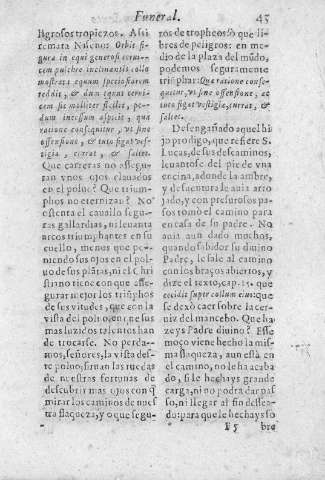 Funeral. 45
ligrosos tropiezos. Assi
remata Niseno: Orbis fi-
gura in equi generosi cervi-
cem pulchre inclinantis colla
mostrat equum speciosiarem
reddit, & dum equus cervi-
cem sic mollicer flectit, pe-
dum incessum aspicit, qua
ratione consequitur, vt sine
offensione, & tuto figat ves-
tigia, currat, & saltet.
Que carreras no assegu-
ran vnos ojos clauados
en el poluo? Que trium-
phos no eternizan? No
ostenta el cauallo segu-
ras gallardias, ni leuanta
arcos triumphantes en su
cuello, menos que po-
niendo sus ojos en el pol-
uo de sus plātas, ni el Chri
stiano tiene con que asse-
gurar mejor los triūphos
de ses vitudes, que con la
vista del poluo en q̄ue sus
mas luzidos talentos han
de trocarse. No perda-
mos, señores, la vista des-
te poluo, firman las ruedas
de nuestras fortunas de
descubrir mas ojos con q̄
mirar los caminos de nues
tra flaqueza, y o que segu-
ros de tropheos! O que li-
bres de peligros: en me-
dio de la plaza del mūdo,
podemos seguramente
triumphar: Qua ratione conse-
quitur, vt sine offensione, ac
tuto figat vestigia, currat, &
saltet.
Desengañado aquel hi
jo prodigo, que refiere S.
Lucas, de sus descaminos,
leuantose del pie de vna
encina, adonde la ambre,
y desuentura le auia arro
jado, y con presurosos pa-
sos tomò el camino para
en casa de su padre. No
auia aun dado muchos,
quando sabidor su diuino
Padre, le sale al camino
con los braços abiertos, y
dize el texto, cap. 15. que
cecidit super collum eius: que
se dexò caer sobre la cer-
uiz del mancebo. Que ha
zeys Padre diuino? Esse
moço viene hecho la mis-
ma flaqueza, aun està en
el camino, no le ha acaba
do, si le hechays grande
carga, ni no podra dar pas
so, ni llegar al fin dessea-
do: para que le hechays so
F5 bre